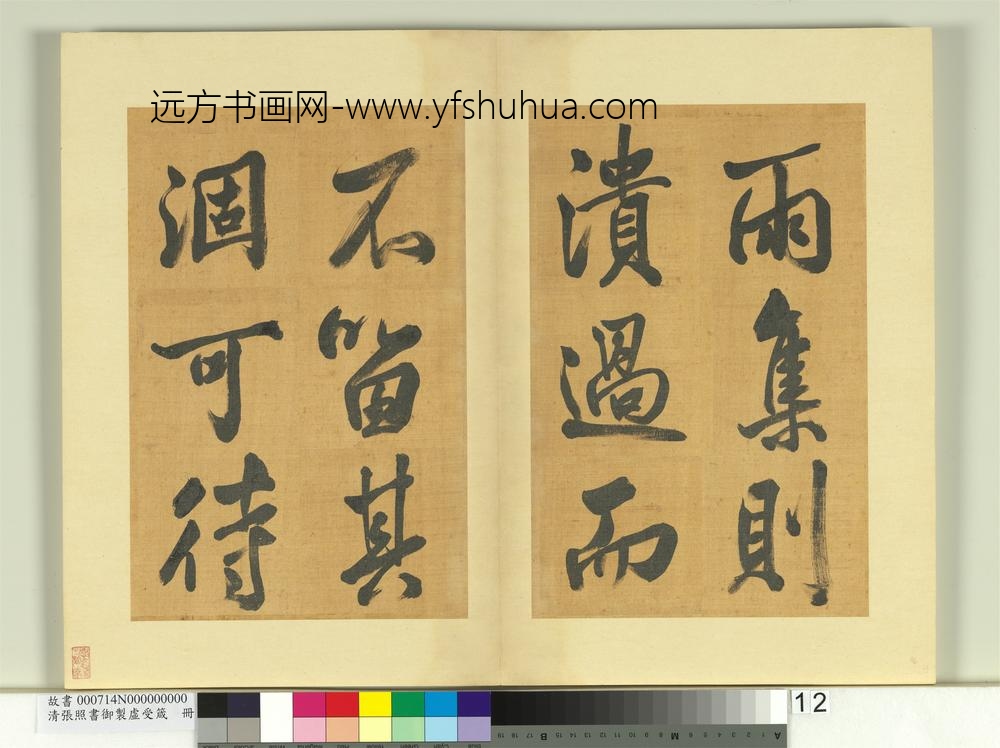 远方书画网-www.yfshuhua.com
雨集則
潰過而
不留其
涸可待
故書 000714N000000000
清張照書御製虛受箴 冊
12